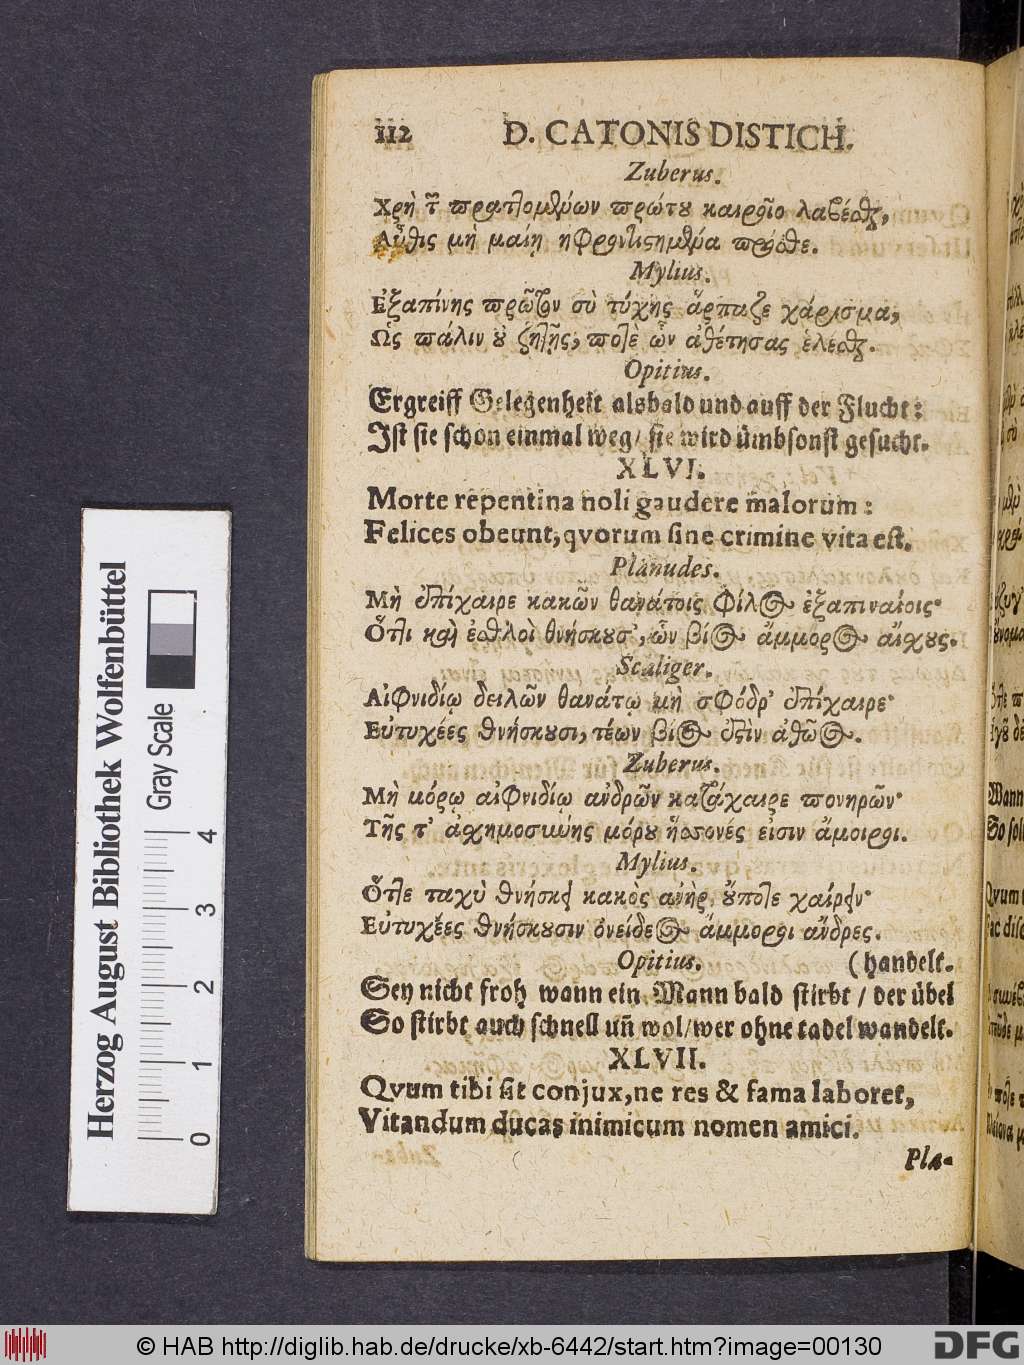 112 D. CATONIS DISTICH.
Zuberus.
Χρὴ πρώτου λαβέσθαι,
Αὖθις μὴ
Mylius.
Ἐξαπίνης πρῶτον σὺ τύχης ἅρπαζε χάρισμα,
Ὡς πάλιν οὐ ζητῇς, ποτὲ ὧν ἀθέτησας ἑλέσθαι.
Opitius.
Ergreiff Gelegenheit alsbald und auff der Flucht:
Jst sie schon einmal weg/ sie wird ümbsonst gesucht.
XLVI.
Morte repentina noli gaudere malorum:
Felices obeunt, qvorum sine crimine vita est.
Planudes.
Μὴ ἐπίχαιρε κακῶν θανάτοις φίλος ἐξαπιναίοις·
Ὅτι καὶ ἐσθλοὶ θνήσκουσ', ὧν βίος ἄμμορος αἴσχους.
Scaliger.
Αἰφνιδίῳ δειλῶν θανάτῳ μὴ σφόδρ' ἐπίχαιρε·
Εὐτυχέες θνήσκουσι, τέων βίος ἐστὶν ἀθῶος.
Zuberus.
Μὴ μόρῳ αἰφνιδίῳ ἀνδρῶν κατάχαιρε πονηρῶν·
Τῆς τ' ἀσχημοσύνης μόρου ἥσσονές εἰσιν ἄμοιροι.
Mylius.
Ὅττε ταχὺ θνήσκει κακὸς ἀνὴρ οὔποτε χαίρειν·
Εὐτυχέες θνήσκουσιν ὀνείδεος ἄμμοροι ἄνδρες.
Opitius. (handelt.
Sey nicht froh wann ein Mann bald stirbt / der übel
So stirbt auch schnell un̄ wol/wer ohne tadel wandelt.
XLVII.
Qvum tibi sit conjux, ne res & fama laboret,
Vitandum ducas inimicum nomen amici.
Pla-
Herzog August Bibliothek Wolfenbüttel
Gray Scale
0 1 2 3 4
© HAB http://diglib.hab.de/drucke/xb-6442/start.htm?image=00130
DFG